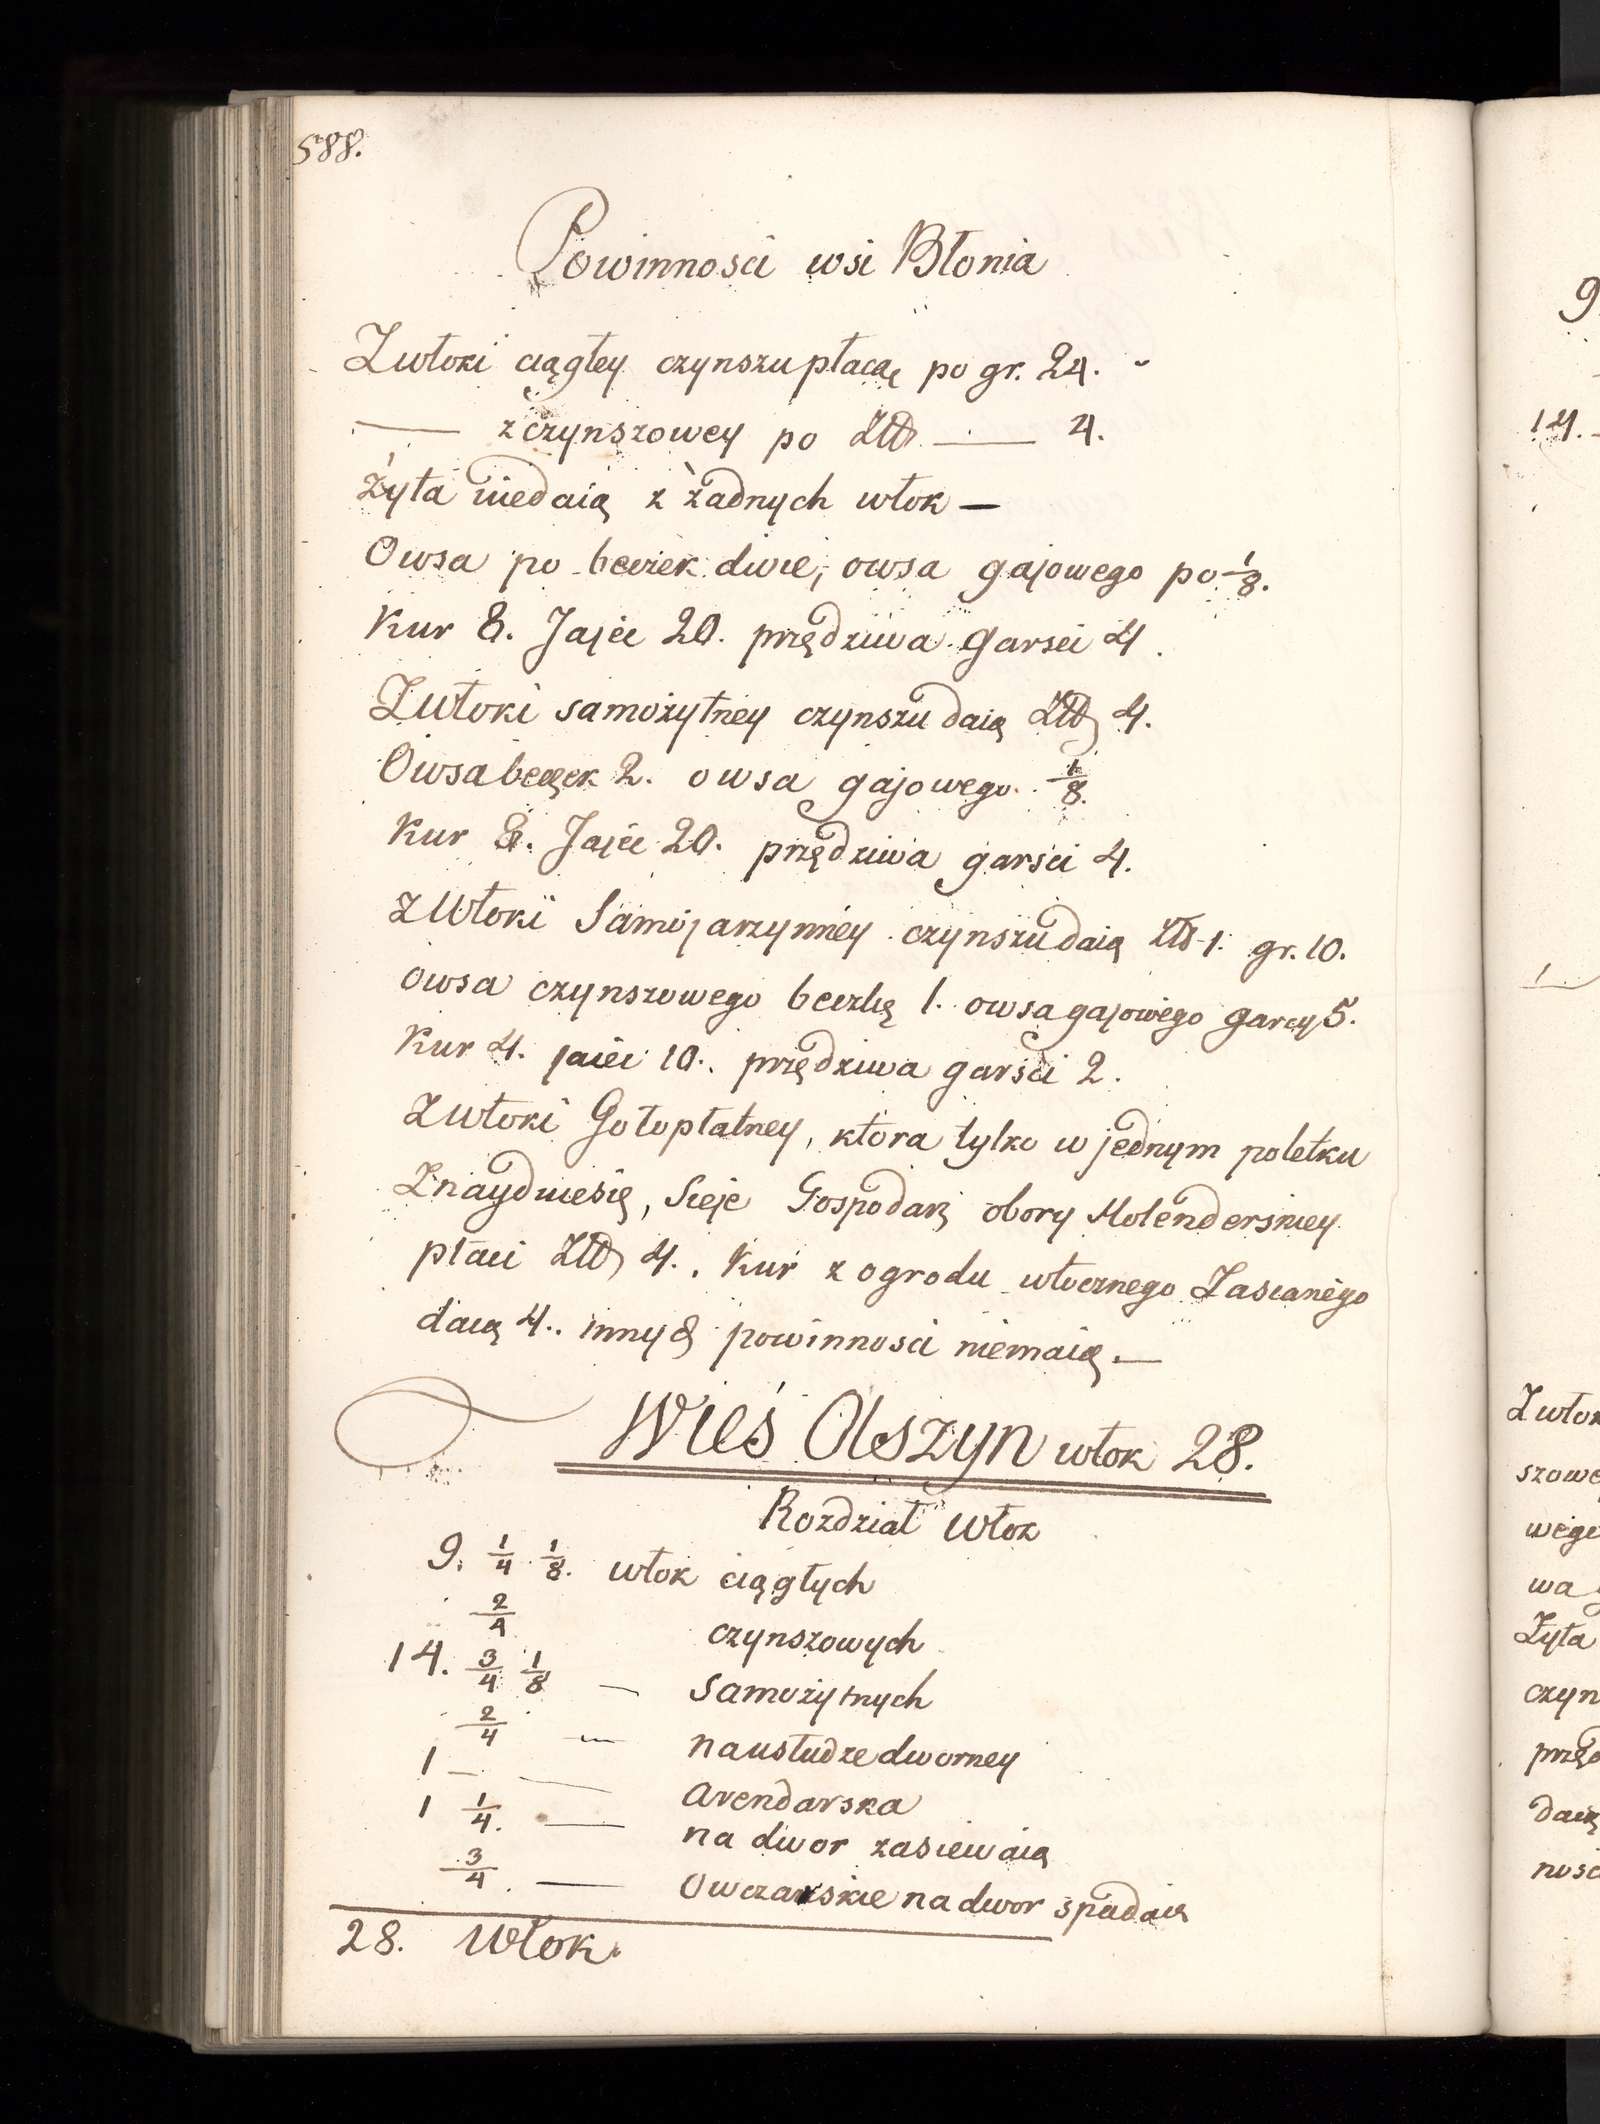 588.
Powinnosci wsi Błonia
Zwłoki ciągłey czynszu płacą po gr. 24.
— z czynszowey po Złł — 4.
Żyta niedaią z żadnych włok —
Owsa po beczek dwie, owsa gajowego po 1/8.
Kur 8. Jajec 20. przędziwa garsci 4.
Zwłoki samożytney czynszu daią Złł 4.
Owsa beczek 2. owsa gajowego 1/8.
Kur 8. Jajec 20. przędziwa garsci 4.
z Włoki Samojarzynney czynszu daią Złł 1. gr. 10.
owsa czynszowego beczkę 1. owsa gajowego garcy 5.
Kur 4. jaiec 10. przędziwa garsci 2.
Z włoki Gołopłatney, ktora tylko w jednym poletku
Znayduiesię, Sieje Gospodarz obory Holenderskiey
płaci Złł 4. Kur z ogrodu włocznego Zasianego
daią 4. innych powinnosci niemaią. —
Wieś Olszyn włok 28.
Rozdział włok
9. 1/4 1/8. włok ciągłych
2/4 czynszowych
14. 3/4 1/8 — Samożytnych
2/4 — na usłudze dworney
1 — — Arendarska
1 1/4. — na dwor zasiewaią
3/4. — Owczarskie na dwor spadaią
28. Włok.
9
14.
1
Zwłok
szowe
wego
wa
Żyta
czyn
przę
daią
nosc